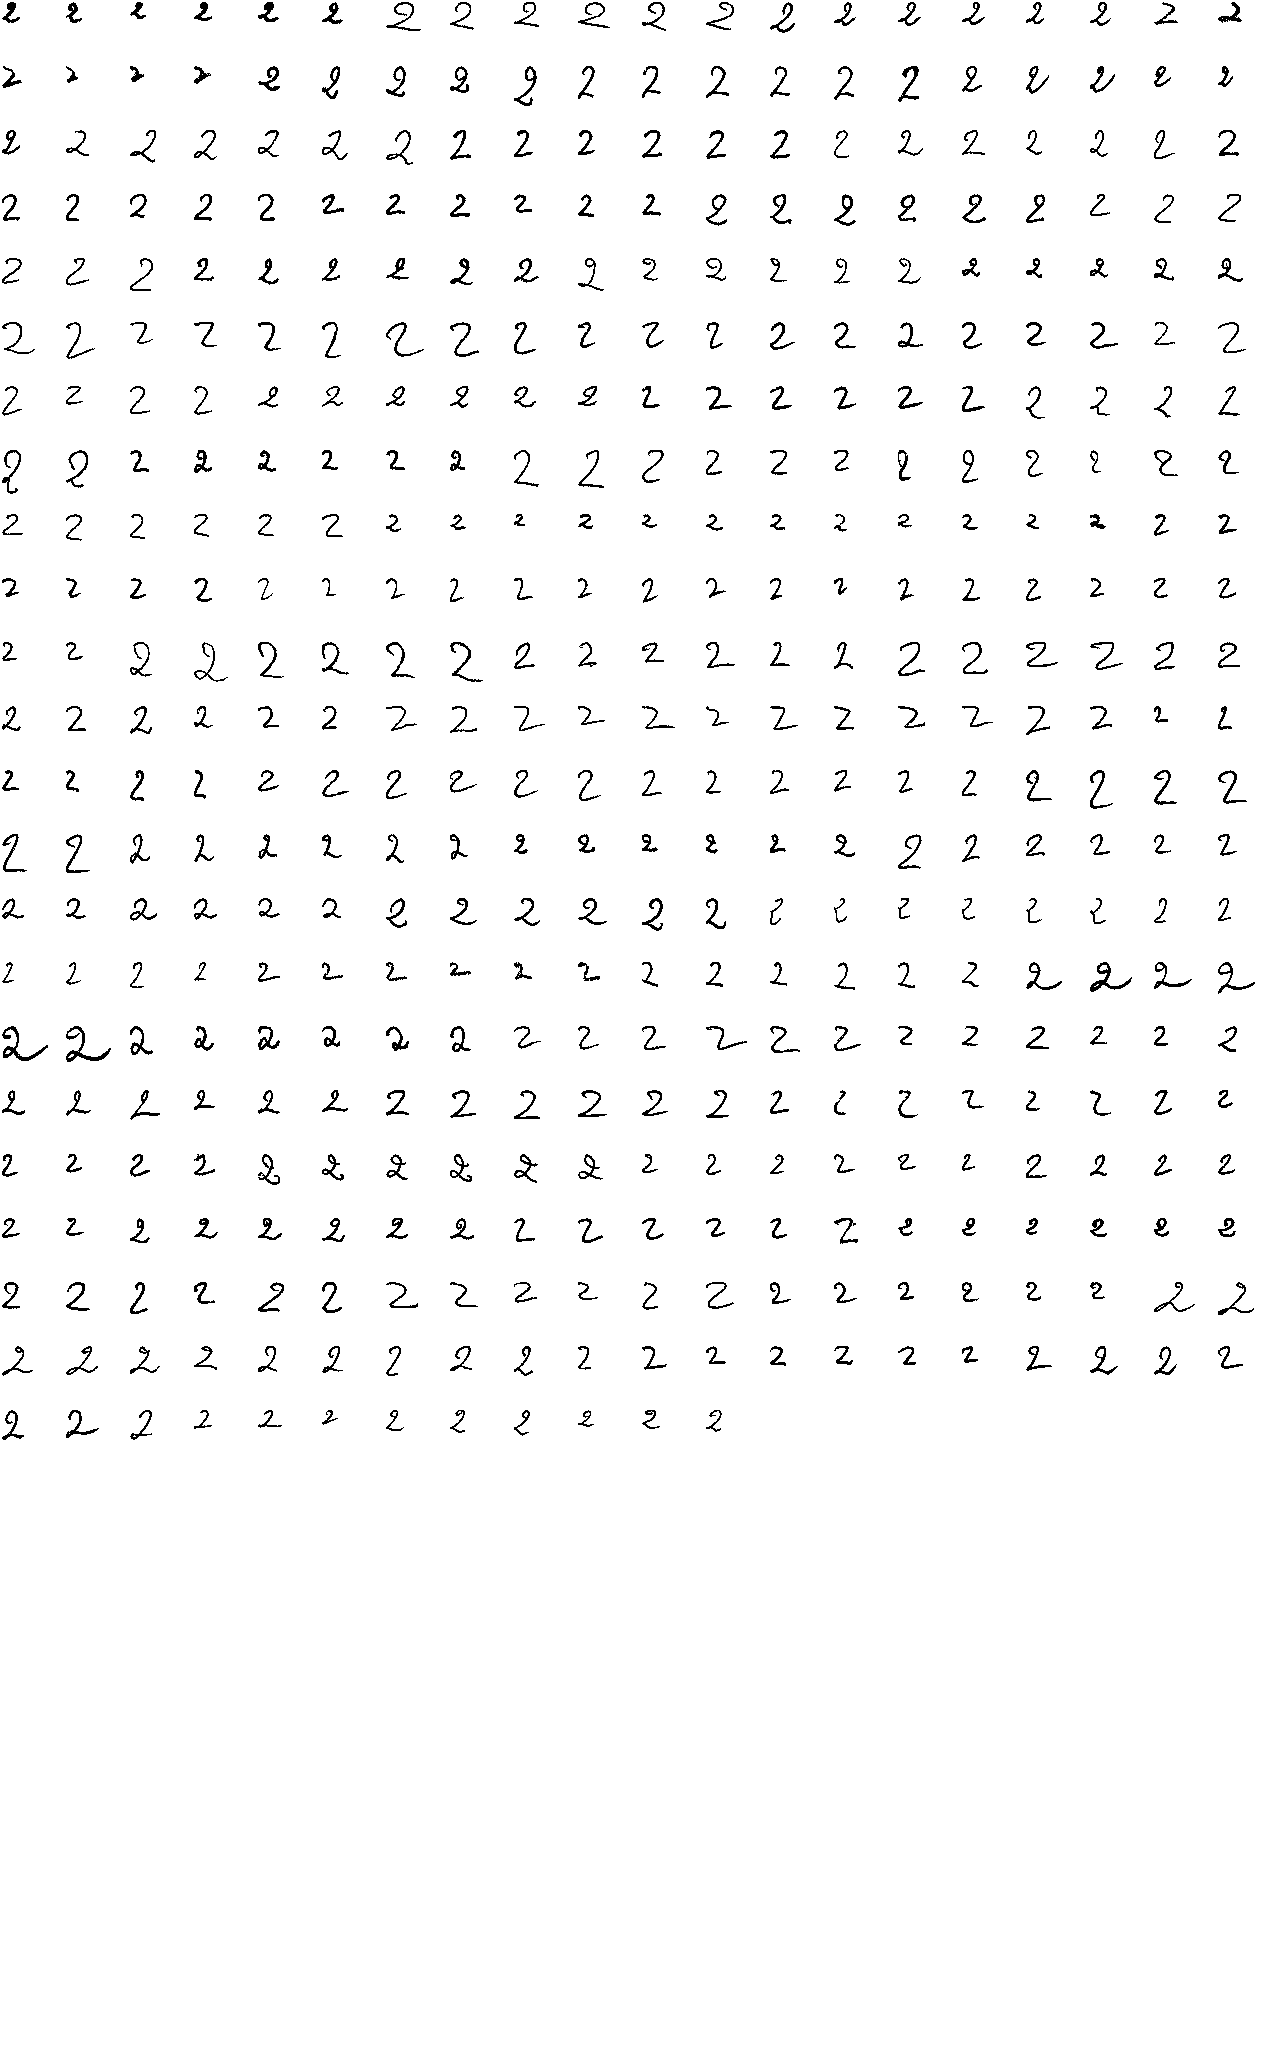 2 2 2 2 2 2 2 2 2 2 2 2 2 2 2 2 2 2 2 2
2 2 2 2 2 2 2 2 2 2 2 2 2 2 2 2 2 2 2 2
2 2 2 2 2 2 2 2 2 2 2 2 2 2 2 2 2 2 2 2
2 2 2 2 2 2 2 2 2 2 2 2 2 2 2 2 2 2 2 2
2 2 2 2 2 2 2 2 2 2 2 2 2 2 2 2 2 2 2 2
2 2 2 2 2 2 2 2 2 2 2 2 2 2 2 2 2 2 2 2
2 2 2 2 2 2 2 2 2 2 2 2 2 2 2 2 2 2 2 2
2 2 2 2 2 2 2 2 2 2 2 2 2 2 2 2 2 2 2 2
2 2 2 2 2 2 2 2 2 2 2 2 2 2 2 2 2 2 2 2
2 2 2 2 2 2 2 2 2 2 2 2 2 2 2 2 2 2 2 2
2 2 2 2 2 2 2 2 2 2 2 2 2 2 2 2 2 2 2 2
2 2 2 2 2 2 2 2 2 2 2 2 2 2 2 2 2 2 2 2
2 2 2 2 2 2 2 2 2 2 2 2 2 2 2 2 2 2 2 2
2 2 2 2 2 2 2 2 2 2 2 2 2 2 2 2 2 2 2 2
2 2 2 2 2 2 2 2 2 2 2 2 2 2 2 2 2 2 2 2
2 2 2 2 2 2 2 2 2 2 2 2 2 2 2 2 2 2 2 2
2 2 2 2 2 2 2 2 2 2 2 2 2 2 2 2 2 2 2 2
2 2 2 2 2 2 2 2 2 2 2 2 2 2 2 2 2 2 2 2
2 2 2 2 2 2 2 2 2 2 2 2 2 2 2 2 2 2 2 2
2 2 2 2 2 2 2 2 2 2 2 2 2 2 2 2 2 2 2 2
2 2 2 2 2 2 2 2 2 2 2 2 2 2 2 2 2 2 2 2
2 2 2 2 2 2 2 2 2 2 2 2 2 2 2 2 2 2 2 2
2 2 2 2 2 2 2 2 2 2 2 2